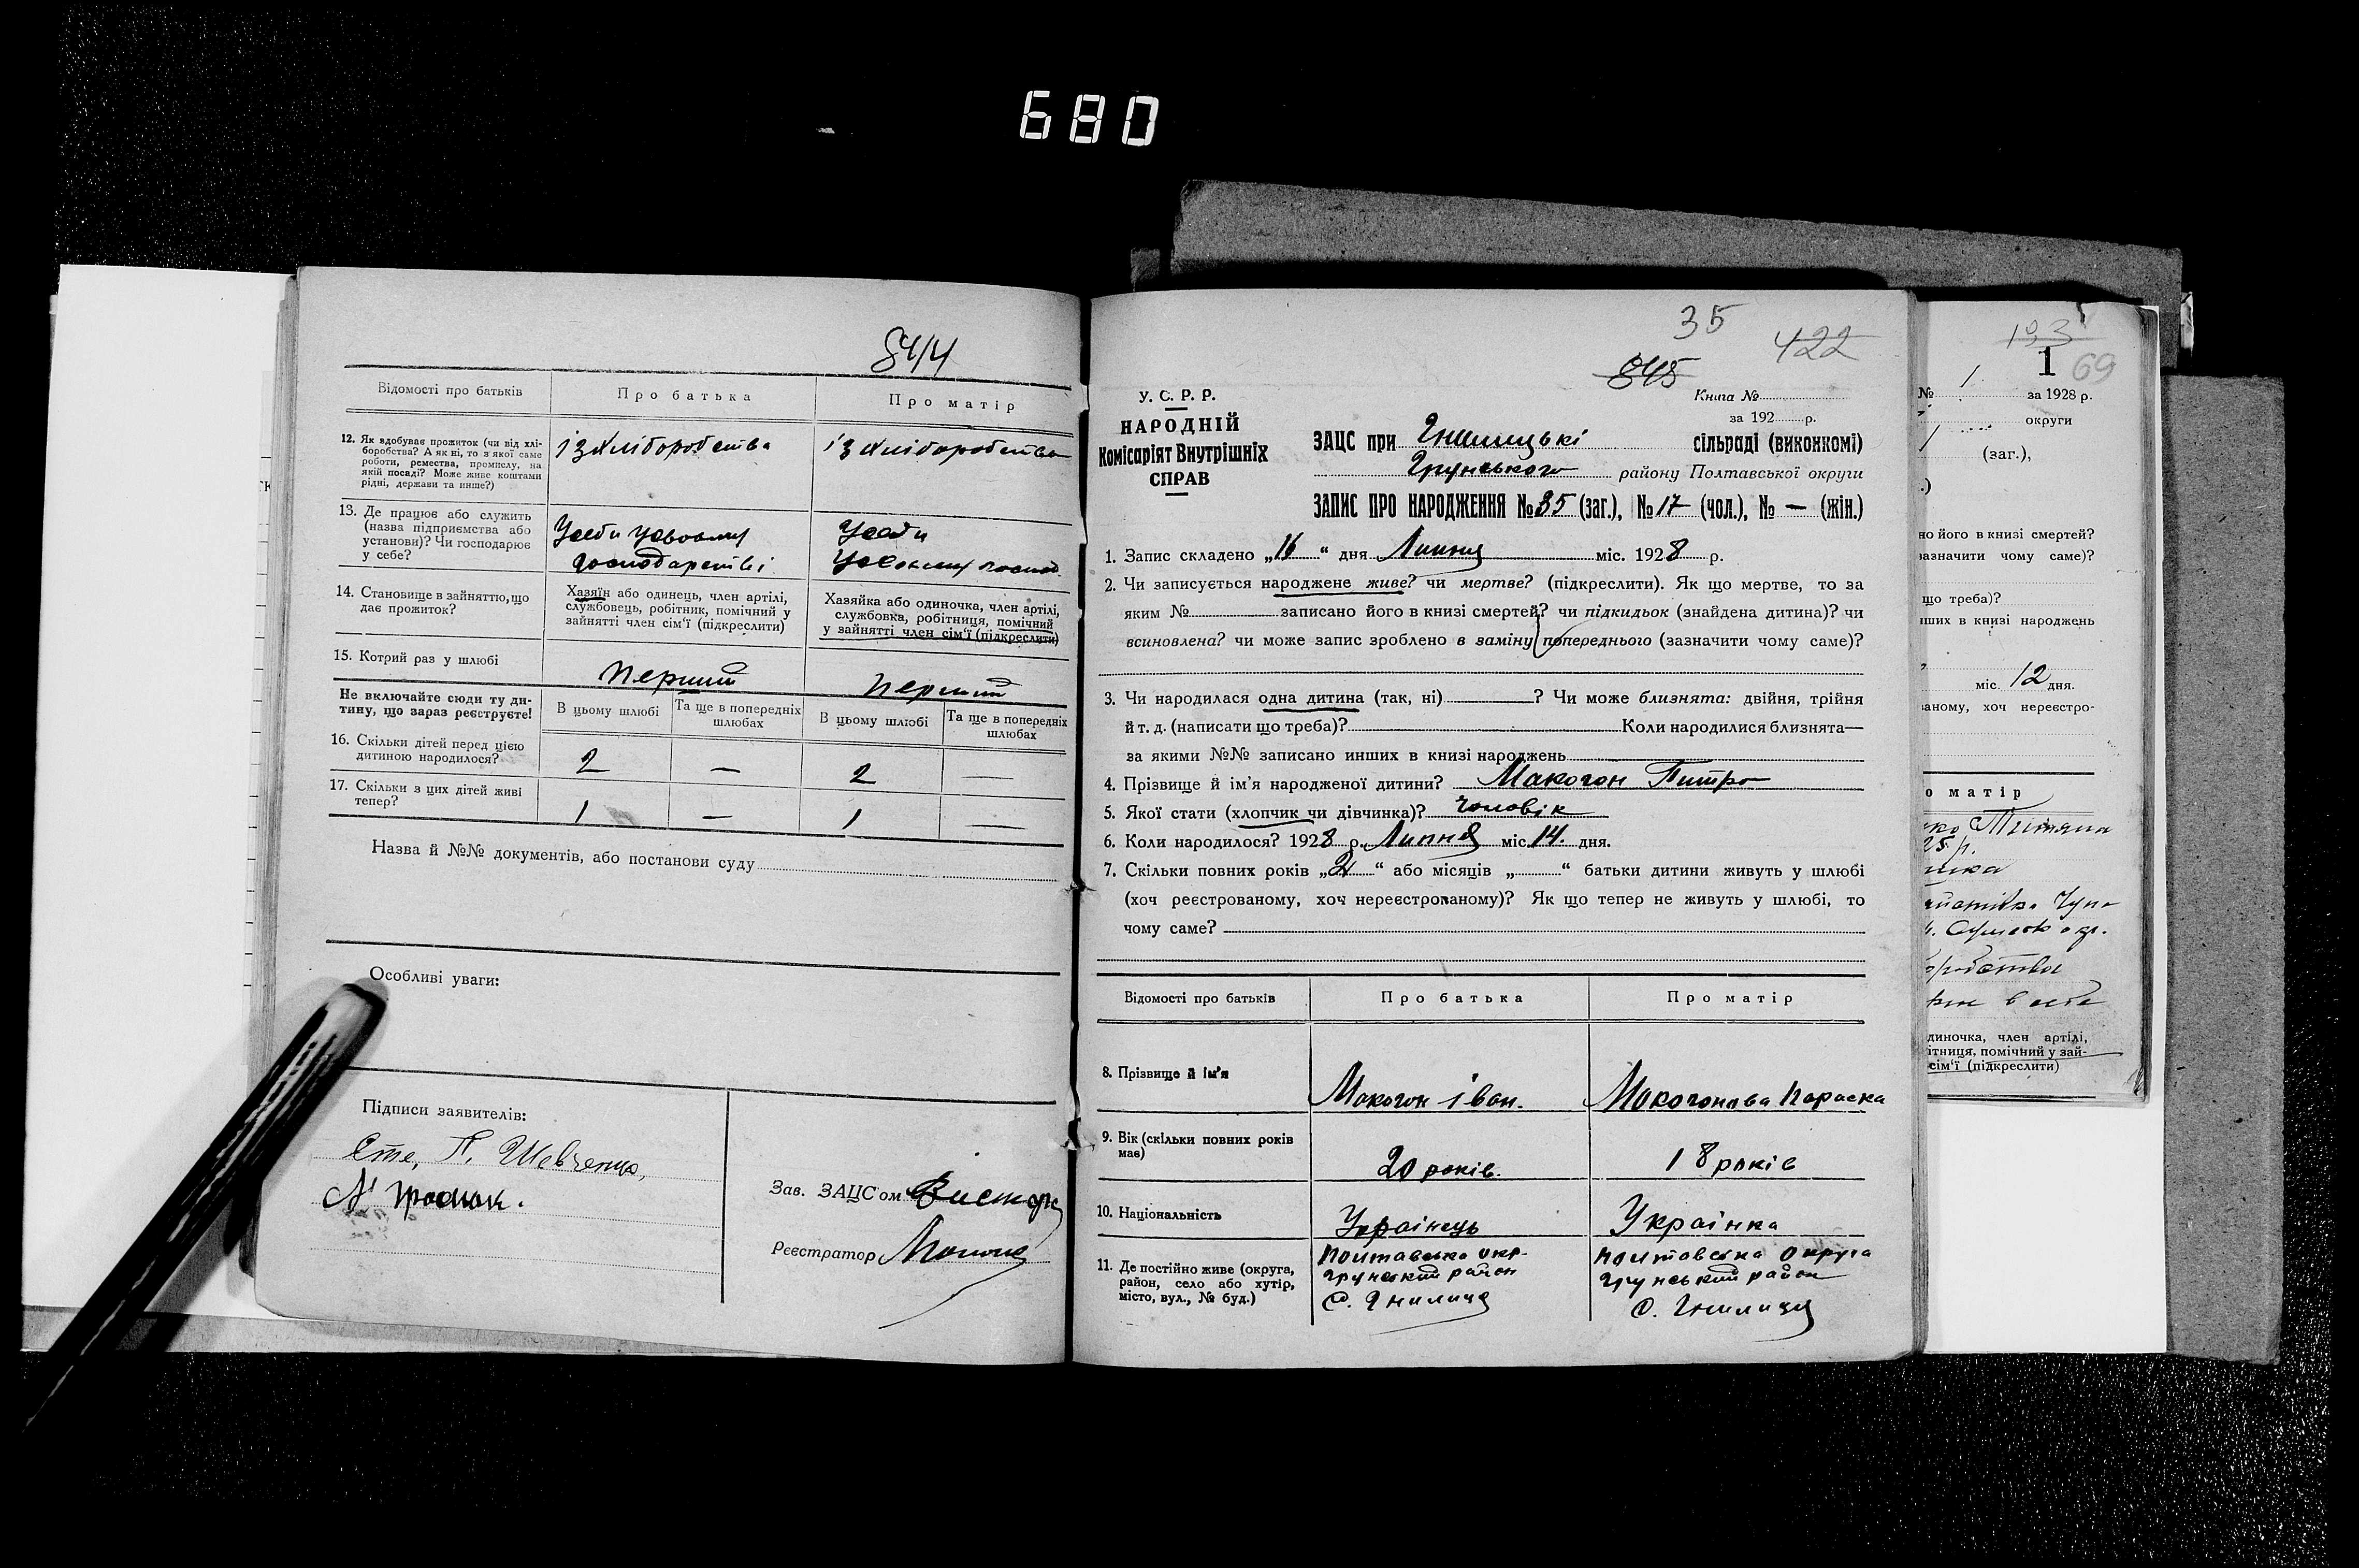 680
844
Відомості про батьків
Про батька
Про матір
12. Як здобуває прожиток (чи від хлі-
боробства? А як ні, то з якої саме
роботи, ремества, промислу, на
якій посаді? Може живе коштами
рідні, держави та инше?)
із хліборобства
із хліборобства
13. Де працює або служить
(назва підприємства або
установи)? Чи господарює
у себе?
господарстві
14. Становище в зайняттю, що
дає прожиток?
Хазяїн або одинець, член артілі,
службовець, робітник, помічний у
зайнятті член сім'ї (підкреслити)
Хазяйка або одиночка, член артілі,
службовка, робітниця, помічний
у зайнятті член сім'ї (підкреслити)
15. Котрий раз у шлюбі
перший
перший
Не включайте сюди ту ди-
тину, що зараз реєструєте!
В цьому шлюбі
Та ще в попередніх
шлюбах
В цьому шлюбі
Та ще в попередніх
шлюбах
16. Скільки дітей перед цією
дитиною народилося?
2 — 2 —
17. Скільки з цих дітей живі
тепер?
1 — 1 —
Назва й №№ документів, або постанови суду
Особливі уваги:
Підписи заявителів:
П. Шевченко,
Зав. ЗАЦС'ом
Реєстратор
35
422
845
У. С. Р. Р.
НАРОДНІЙ
Комісаріят Внутрішніх
СПРАВ
Книга №
за 192 р.
ЗАЦС при Гнилицькі сільраді (виконкомі)
Грунського району Полтавської округи
ЗАПИС ПРО НАРОДЖЕННЯ № 35 (заг.), № 17 (чол.), № — (жін.)
1. Запис складено „16“ дня Липня міс. 1928 р.
2. Чи записується народжене живе? чи мертве? (підкреслити). Як що мертве, то за
яким № записано його в книзі смертей? чи підкидьок (знайдена дитина)? чи
всиновлена? чи може запис зроблено в заміну попереднього (зазначити чому саме)?
3. Чи народилася одна дитина (так, ні) ? Чи може близнята: двійня, трійня
й т. д. (написати що треба)? Коли народилися близнята—
за якими №№ записано инших в книзі народжень
4. Прізвище й ім'я народженої дитини? Макогон Питро
5. Якої стати (хлопчик чи дівчинка)? чоловік
6. Коли народилося? 1928 р. Липня міс. 14. дня.
7. Скільки повних років „2“ або місяців „ “ батьки дитини живуть у шлюбі
(хоч реєстрованому, хоч нереєстрованому)? Як що тепер не живуть у шлюбі, то
чому саме?
Відомості про батьків
Про батька
Про матір
8. Прізвище й ім'я
Макогон Іван.
Макогонова Параска
9. Вік (скільки повних років
має)
20 років.
18 років
10. Національність
Українець
Українка
11. Де постійно живе (округа,
район, село або хутір,
місто, вул., № буд.)
Полтавська окр.
Грунський район
с. Гнилиця
Полтавська округа
Грунський район
с. Гнилиця
1
69
№ 1. за 1928 р.
округи
(заг.),
но його в книзі смертей?
зазначити чому саме)?
що треба)?
нших в книзі народжень
міс. 12 дня.
ваному, хоч нереєстро-
о матір
25 р.
диночка, член артілі,
ітниця, помічний у зай-
сім'ї (підкреслити)